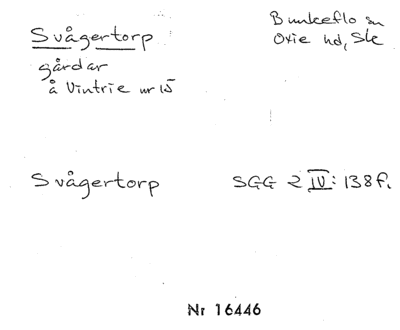 Svågertorp
Bunkeflo sn
Oxie hd, Ske
gårdar
å Vintrie nr 15
Svågertorp
SGG 2 IV: 138 f.
Nr 16446